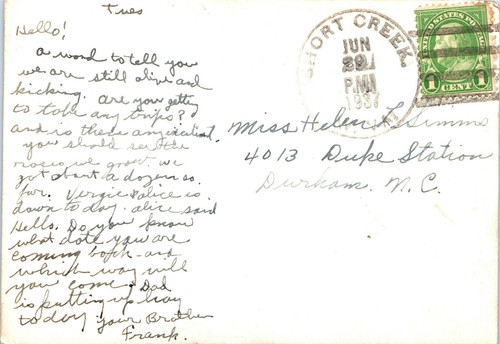 Tues
Hello!
a word to tell you
we are still alive and
kicking. are you getting
to take any trips?
and is there any
you should see the
roses we grow. we
got about a dozen so
far. Vergie & alice is
down to day. alice said
Hello. Do you know
what date you are
coming back and
which way will
you come. Dad
is putting up hay
to day. your Brother
Frank.
SHORT CREEK.
JUN
29
PM
1937
UNITED STATES POSTAGE
1 CENT 1
Miss Helen L Simms
4013 Duke Station
Durham. N.C.